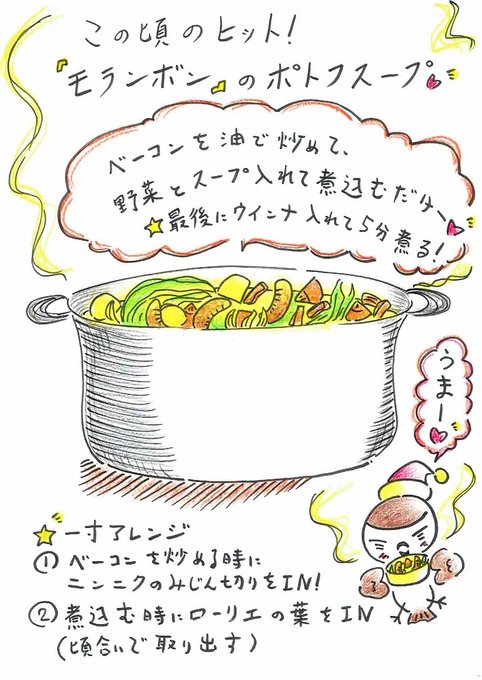 この頃のヒット!
『モランボン』のポトフスープ
ベーコンを油で炒めて、
野菜とスープ入れて煮込むだけ〜
★最後にウインナ入れて5分煮る!
うまー
★一寸アレンジ
① ベーコンを炒める時に
ニンニクのみじん切りをIN!
② 煮込む時にローリエの葉をIN
(頃合いで取り出す)